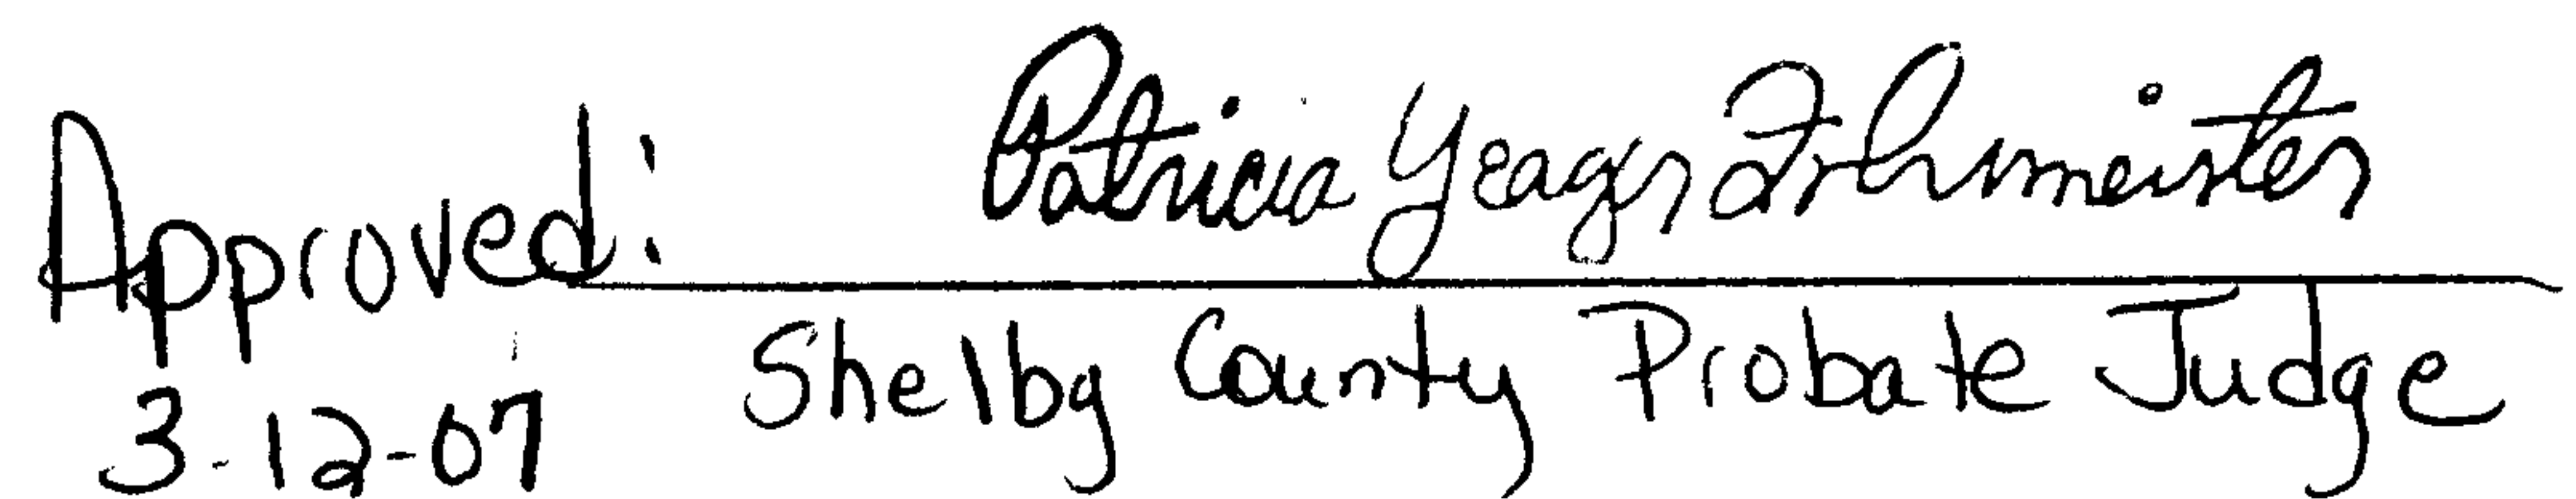 Approved: Patricia Yeager Fuhrmeister
Shelby County Probate Judge
3-12-07